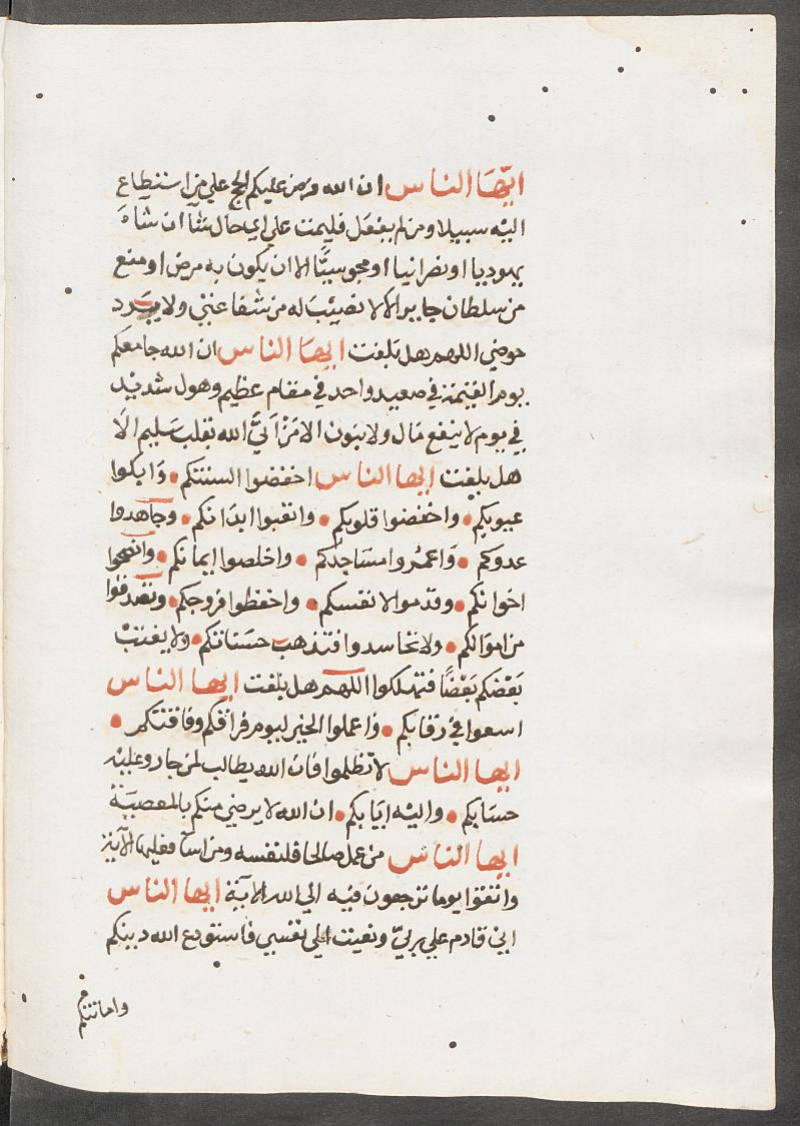 ايّها الناس ان الله فرض عليكم الحج علي من استطاع
اليْه سبيلا ومن لم يفعَل فليمت علي اي حال شآ ان شاءَ
يهوديا او نصرانيا او مجوسيًّا الا ان يكون به مرض او منع
من سلطان جاير الا لا نصيبَ له من شفاعتي ولا يَرد
حوضي اللهم هل بَلغت ايها الناس ان الله جامعكم
يوم القيٰمة في صعيد واحد في مقام عظيم وهول شديد
في يوم لا ينفع مَال ولا بنون الا مَن اَتيَ الله بقلب سَليم الَا
هل بلغت ايها الناس احفضوا السنتكم • وَابكوا
عيونكم • واخفضوا قلوبكم • واتعبوا ابدَانكم • وجاهدوا
عدوكم • وَاعمُروا مسَاجدكم • واخلصوا ايمانكم • وانصحوا
اخوانكم • وقدموا لانفسكم • واحفظوا فروجكم • وتصَدقوا
من اموَالكم • ولا تحاسدوا فتذهب حسَناتكم • ولا يغتبْ
بَعضكم بَعْضًا فتهلكوا اللهم هل بلغت ايها الناس
اسعوا في رقابكم • وَاعملوا الخير ليوم فراقكم وفاقتكم •
ايها الناس لا تظلموا فان الله يطالب لمن جار وعليْه
حسَابكم • واليْه ايَابكم • ان الله لا يرضي منكم بالمعصيَة
ايها الناس من عمل صالحا فلنفسه ومن اسآ فعليها الآية
واتقوا يوما ترجعون فيْه الي الله الايَة ايها الناس
اني قادم علي ربيّ ونعيت الي نفسي فاستودع الله دينكم
وامانتكم